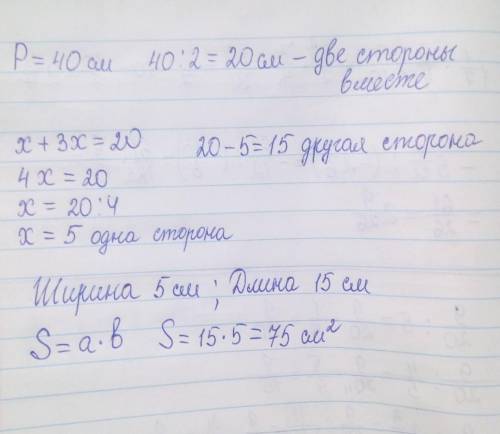 P = 40 см 40 : 2 = 20 см – две стороны
вместе
x + 3x = 20 20 – 5 = 15 другая сторона
4x = 20
x = 20 : 4
x = 5 одна сторона
Ширина 5 см ; Длина 15 см
S = a · b S = 15 · 5 = 75 см²